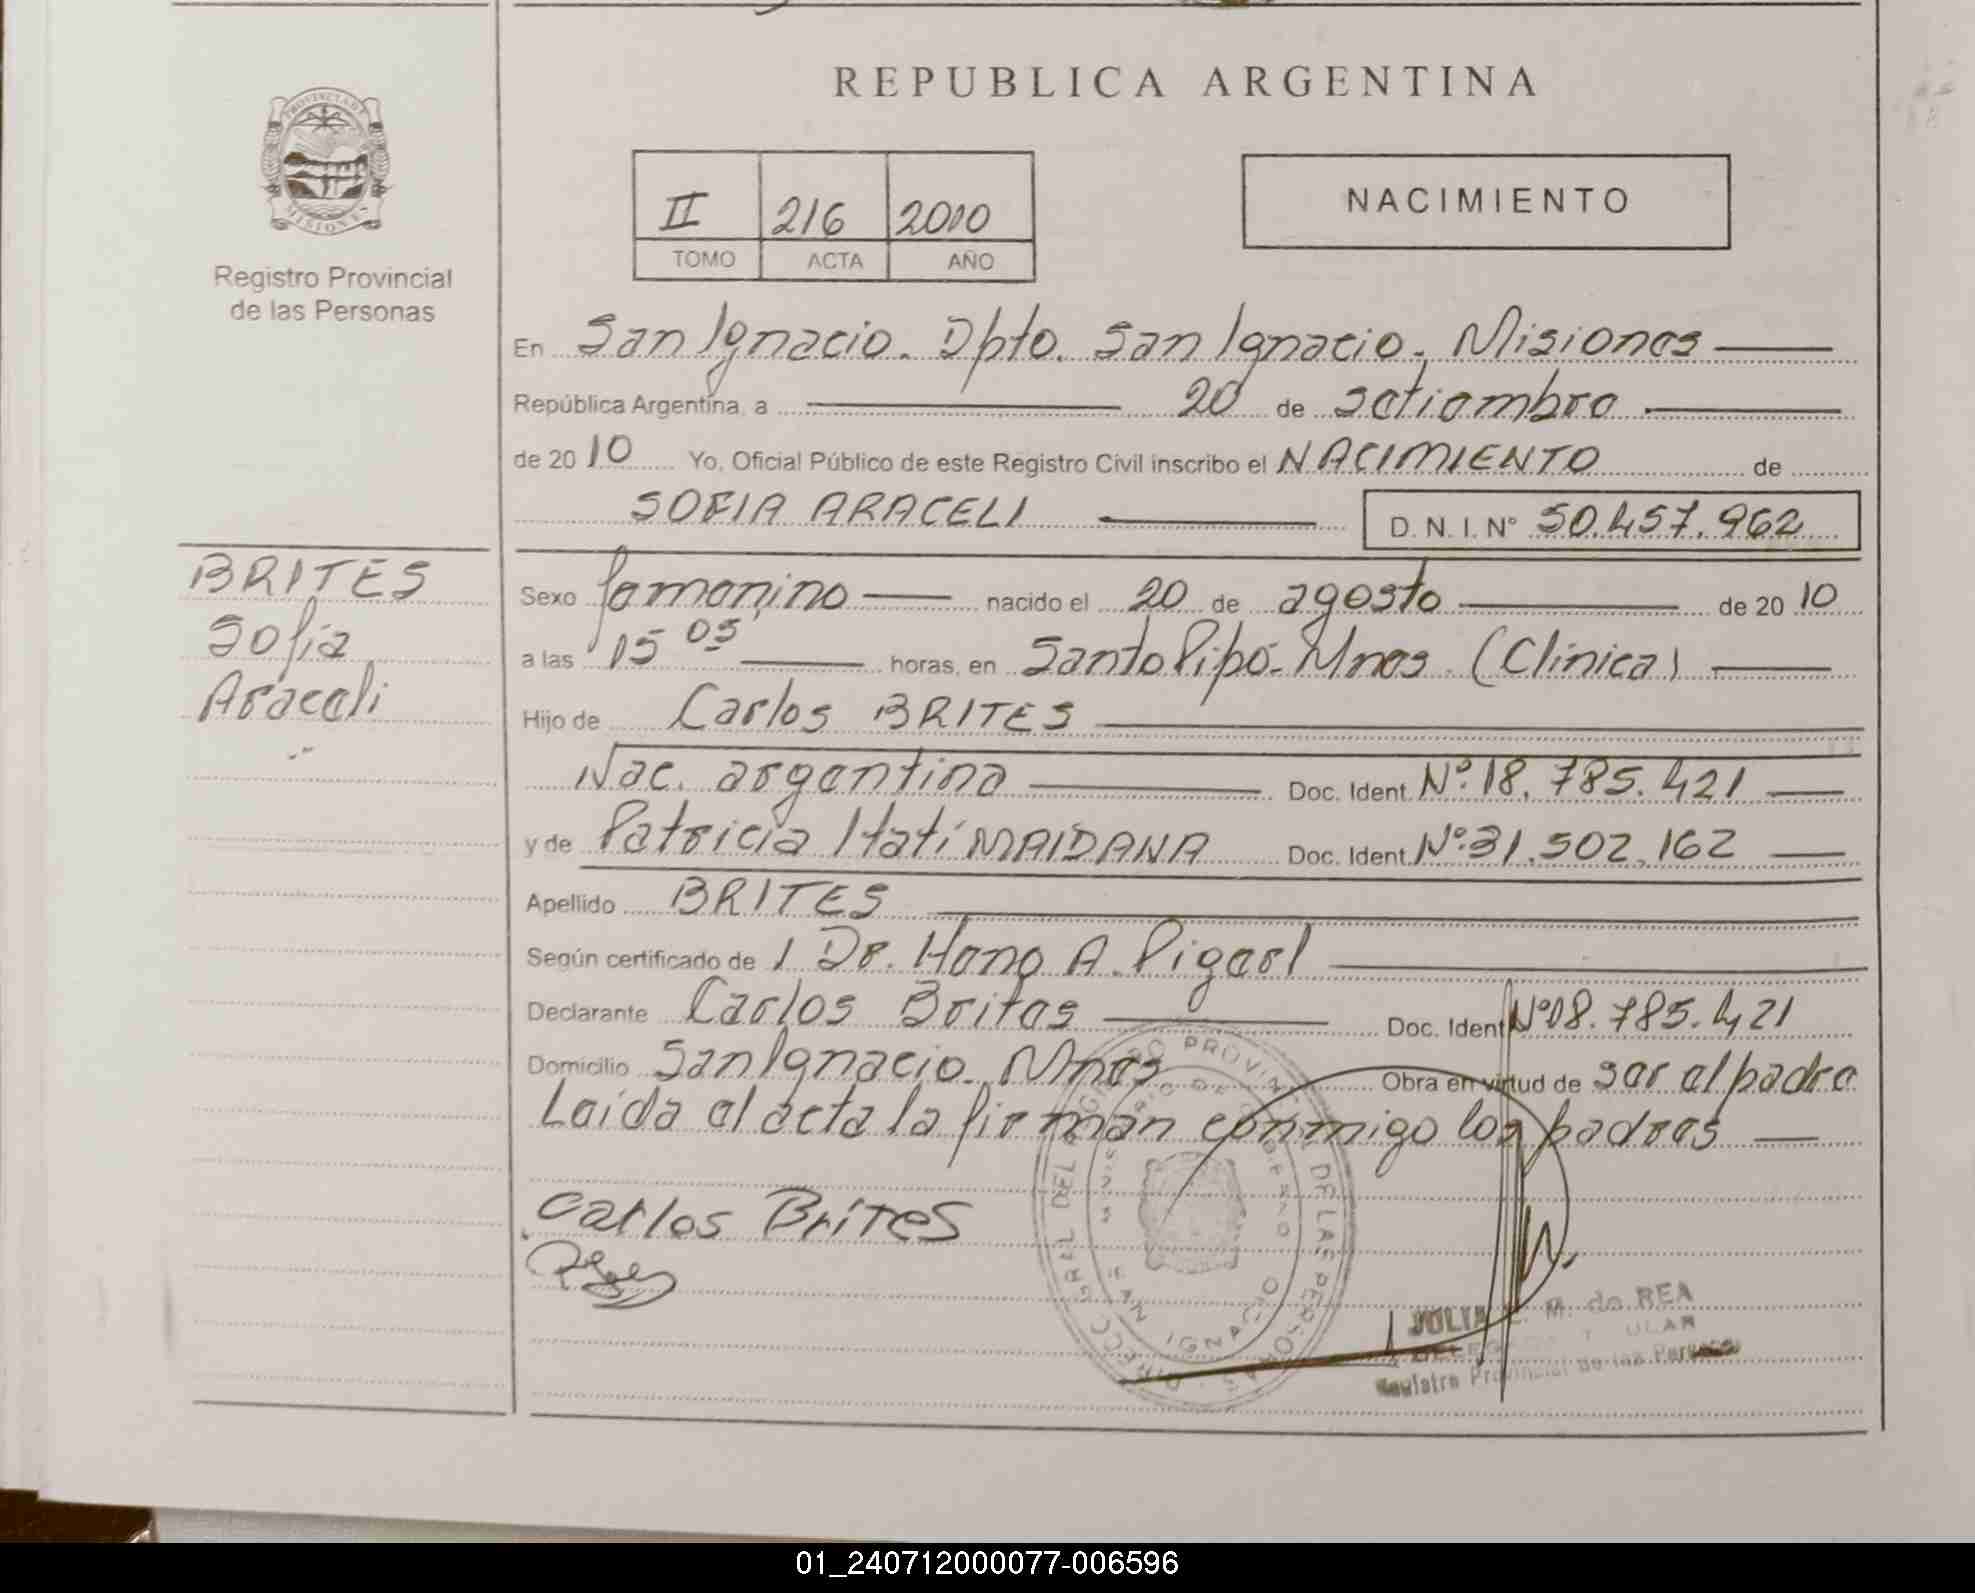 REPUBLICA ARGENTINA
PROVINCIA DE MISIONES
Registro Provincial
de las Personas
II 216 2010
TOMO ACTA AÑO
NACIMIENTO
En San Ignacio. Dpto. San Ignacio. Misiones
República Argentina, a 20 de setiembre
de 2010 Yo, Oficial Público de este Registro Civil inscribo el NACIMIENTO de
SOFIA ARACELI D. N. I. N° 50.457.962
BRITES
Sofia
Araceli
Sexo femenino nacido el 20 de agosto de 2010
a las 15 05 horas, en Santo Pipó- Mnes. (Clínica)
Hijo de Carlos BRITES
Nac. argentina Doc. Ident. Nº. 18.785.421
y de Patricia Itatí MAIDANA Doc. Ident. Nº. 31.502.162
Apellido BRITES
Según certificado de Dr. A.
Declarante Carlos Brites Doc. Ident. Nº 18.785.421
Domicilio San Ignacio. Mnes Obra en virtud de ser el padre
Leída el acta la firman conmigo los padres
Carlos Brites
DIRECC GRAL DEL REGISTRO PROVINCIAL DE LAS PERSONAS
MINISTERIO DE GOBIERNO
SAN IGNACIO
JULIA M. de REA
Registro Provincial de las Personas
01_240712000077-006596